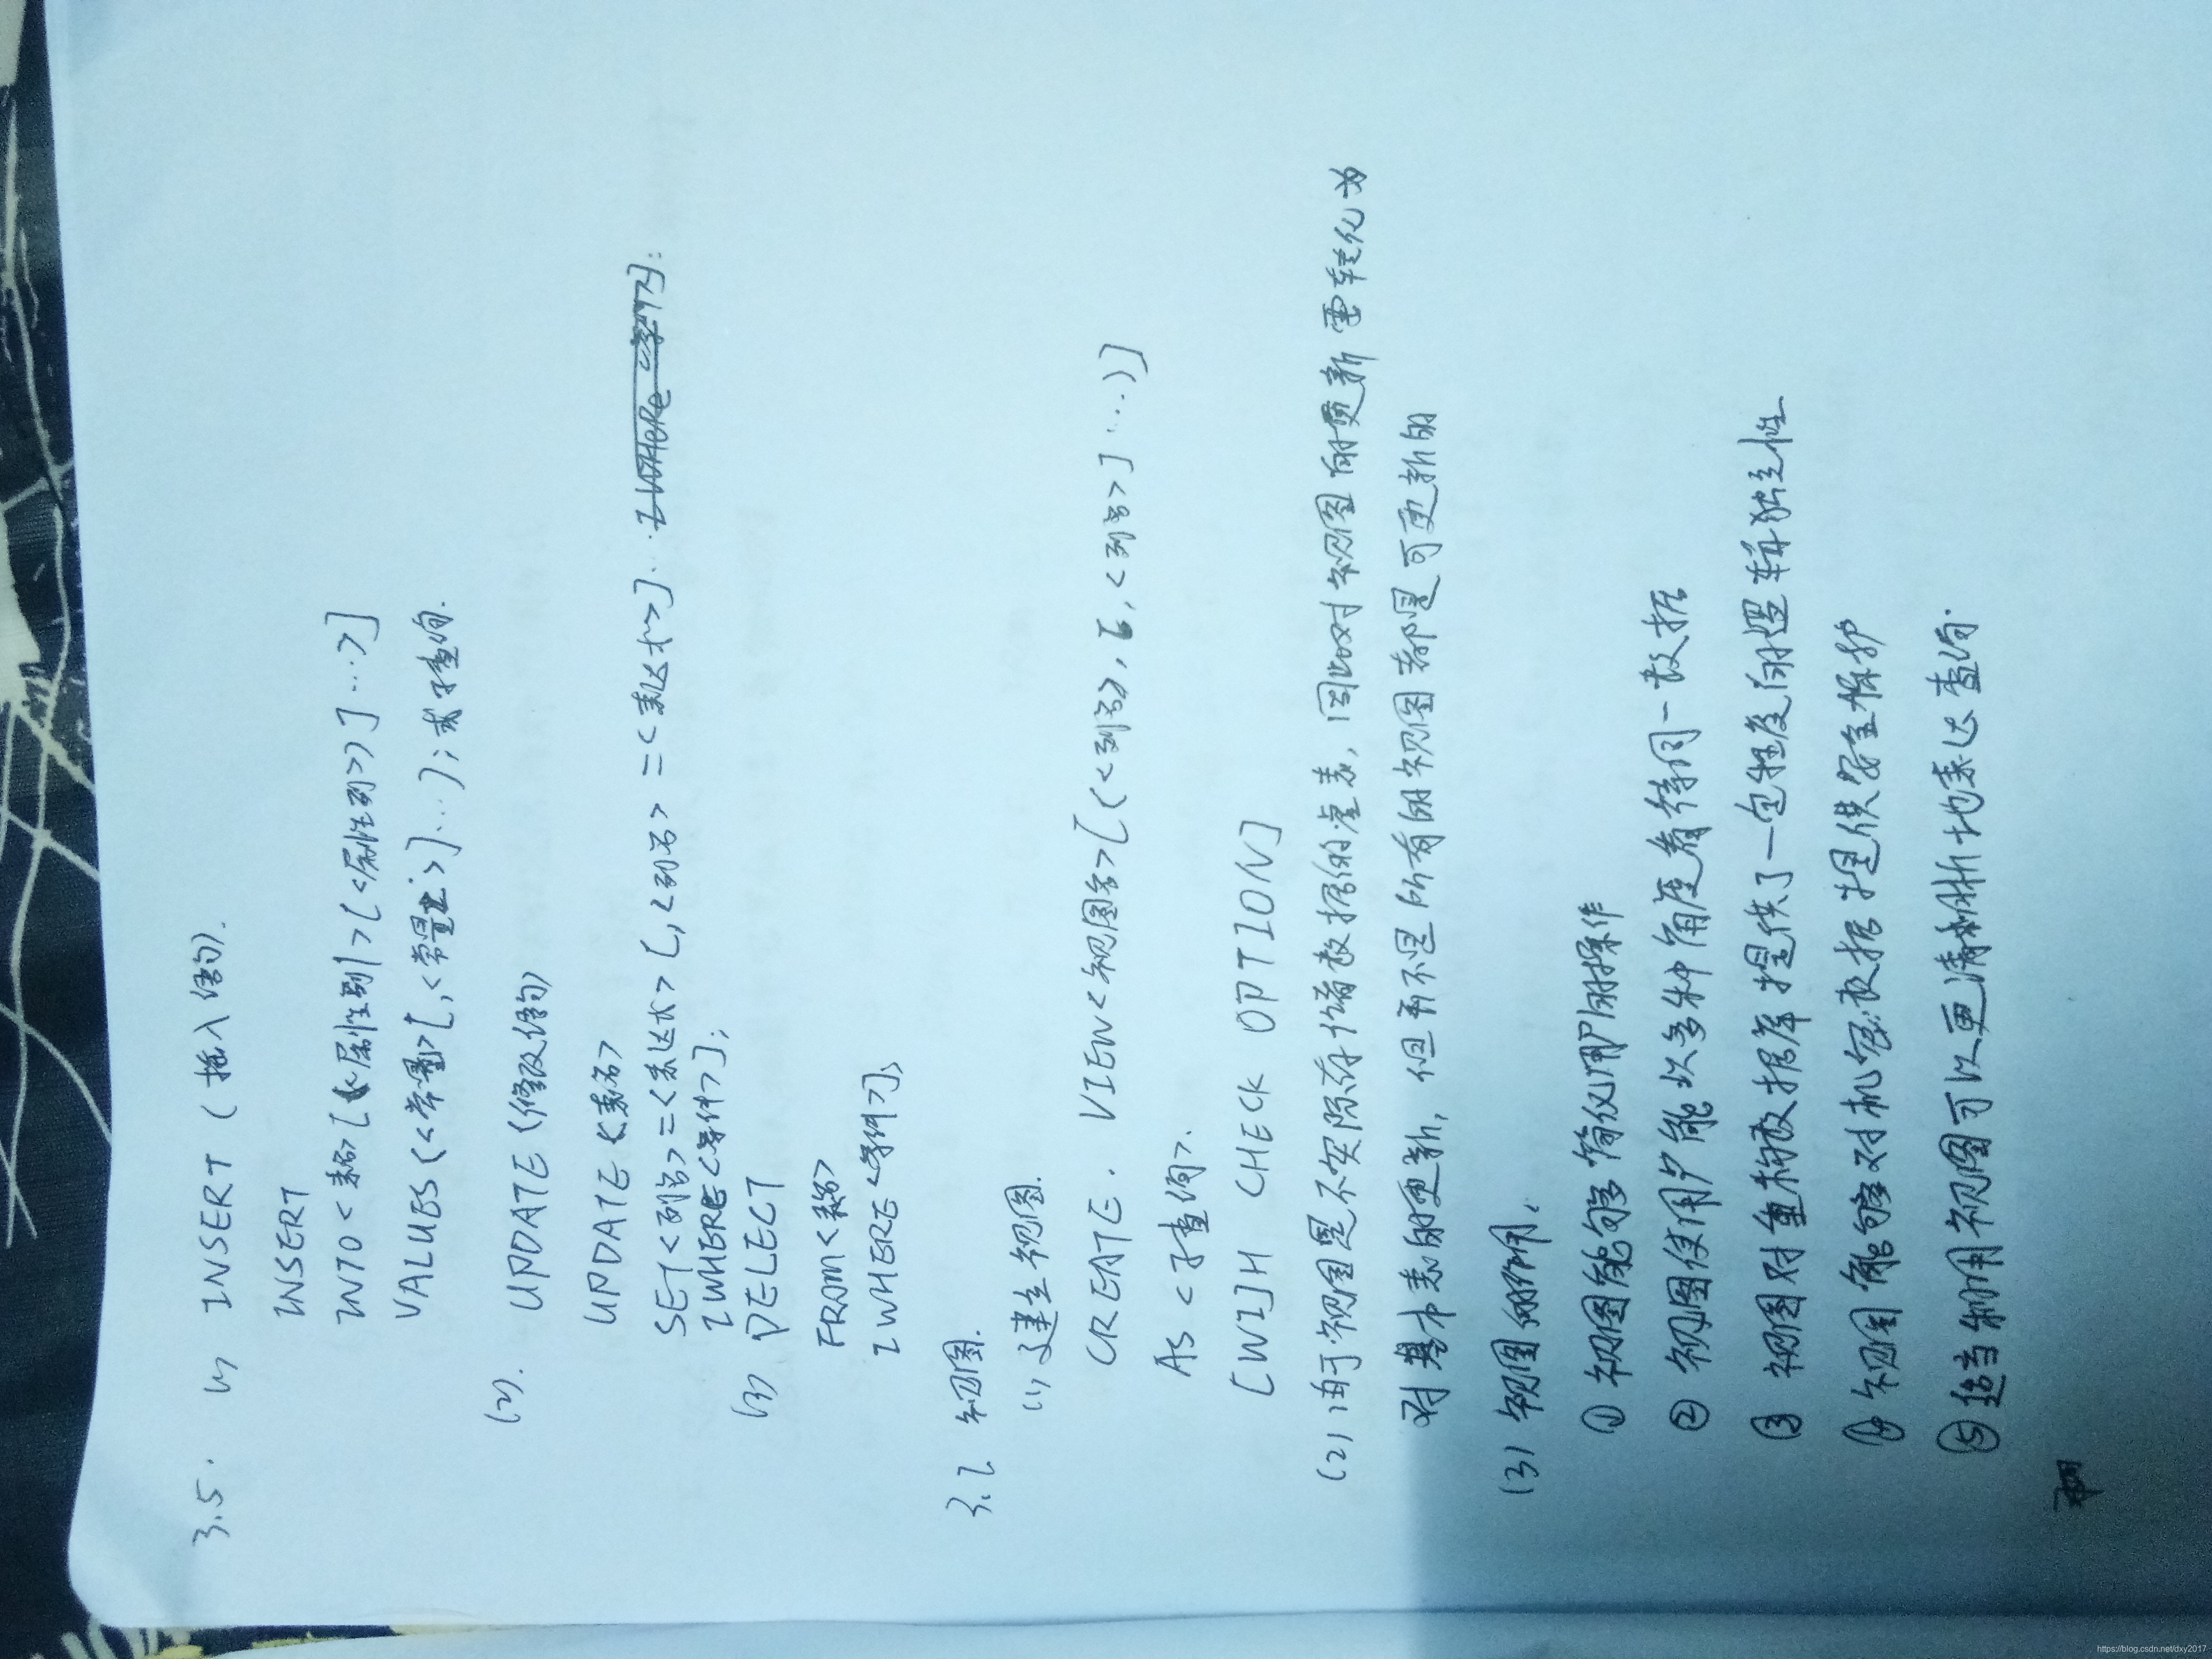 3.5. (1) INSERT (插入语句).
INSERT
INTO <表名> [(<属性列1>[<属性列2>]…>]
VALUES (<常量1>[,<常量2>]…); 或子查询.
(2). UPDATE (修改语句)
UPDATE <表名>
SET <列名>=<表达式>[,<列名>=<表达式>]..
[WHERE<条件>];
(3) DELECT
FROM<表名>
[WHERE<条件>];
3.6 视图.
(1) 建立视图.
CREATE. VIEW<视图名>[(<列名>,[,<列名>]…)]
AS <子查询>.
[WITH CHECK OPTION]
(2) 由于视图是不实际存储数据的虚表, 因此对视图的更新要转化为
对基本表的更新, 但并不是所有的视图都是可更新的
(3) 视图的作用.
① 视图能够简化用户的操作
② 视图使用户能以多种角度看待同一数据
③ 视图对重构数据库提供了一定程度的逻辑独立性
④ 视图能够对机密数据提供安全保护
⑤ 适当利用视图可以更清晰地表达查询.
https://blog.csdn.net/dxy2017